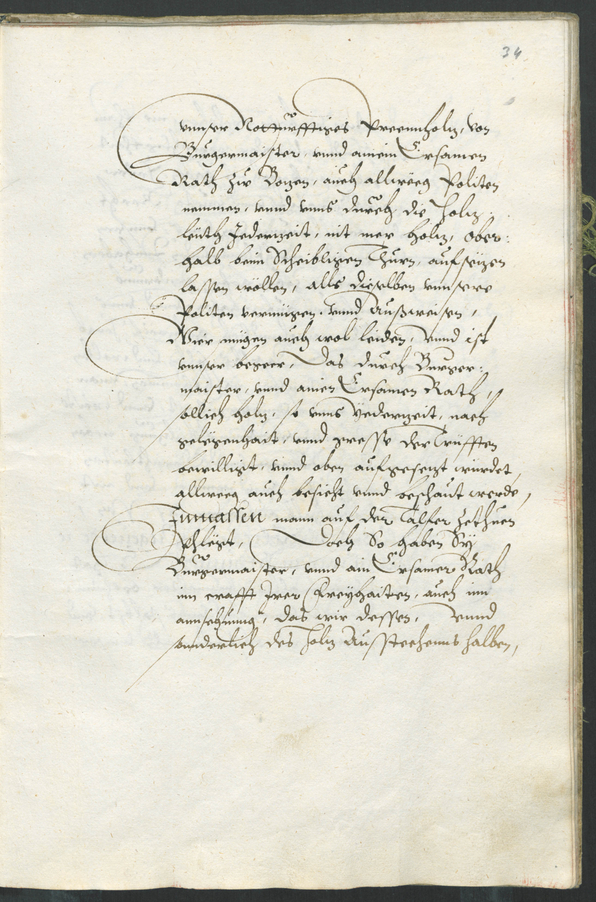 34
vnnser Notturfftiges Preennholz, von
Burgermaister, vnnd ainem Ersamen
Rath zu Bozen, auch allweeg Politen
nemmen, vnnd vnns durch die Holz„
leuth Jederzeit, nit mer Holz, Ober„
halb beim Scheibligen Thurn, aufsezen
lassen wöllen, alls dieselben vnnsere
Politen vermügen vnnd Außweisen,
Wir mügen auch wol leiden, vnnd ist
vnnser begeer, das durch Burger„
maister, vnnd ainen Ersamen Rath,
sollich Holz, so vnns Yederzeit, nach
gelegenhait, vnnd gresse der Trüfften
bewilligt, vnnd oben aufgesezt wurdet,
allweeg auch besicht vnnd beschaut werde,
Inmassen mann auf der Talfer zethuen
Phlegt, Doch So haben Sy
Burgermaister, vnnd ain Ersamer Rath
inn crafft Irer Freyhaiten, auch inn
annsehung, das wir dessen, vnnd
sonderlich des Holz Aussteehenns halben,